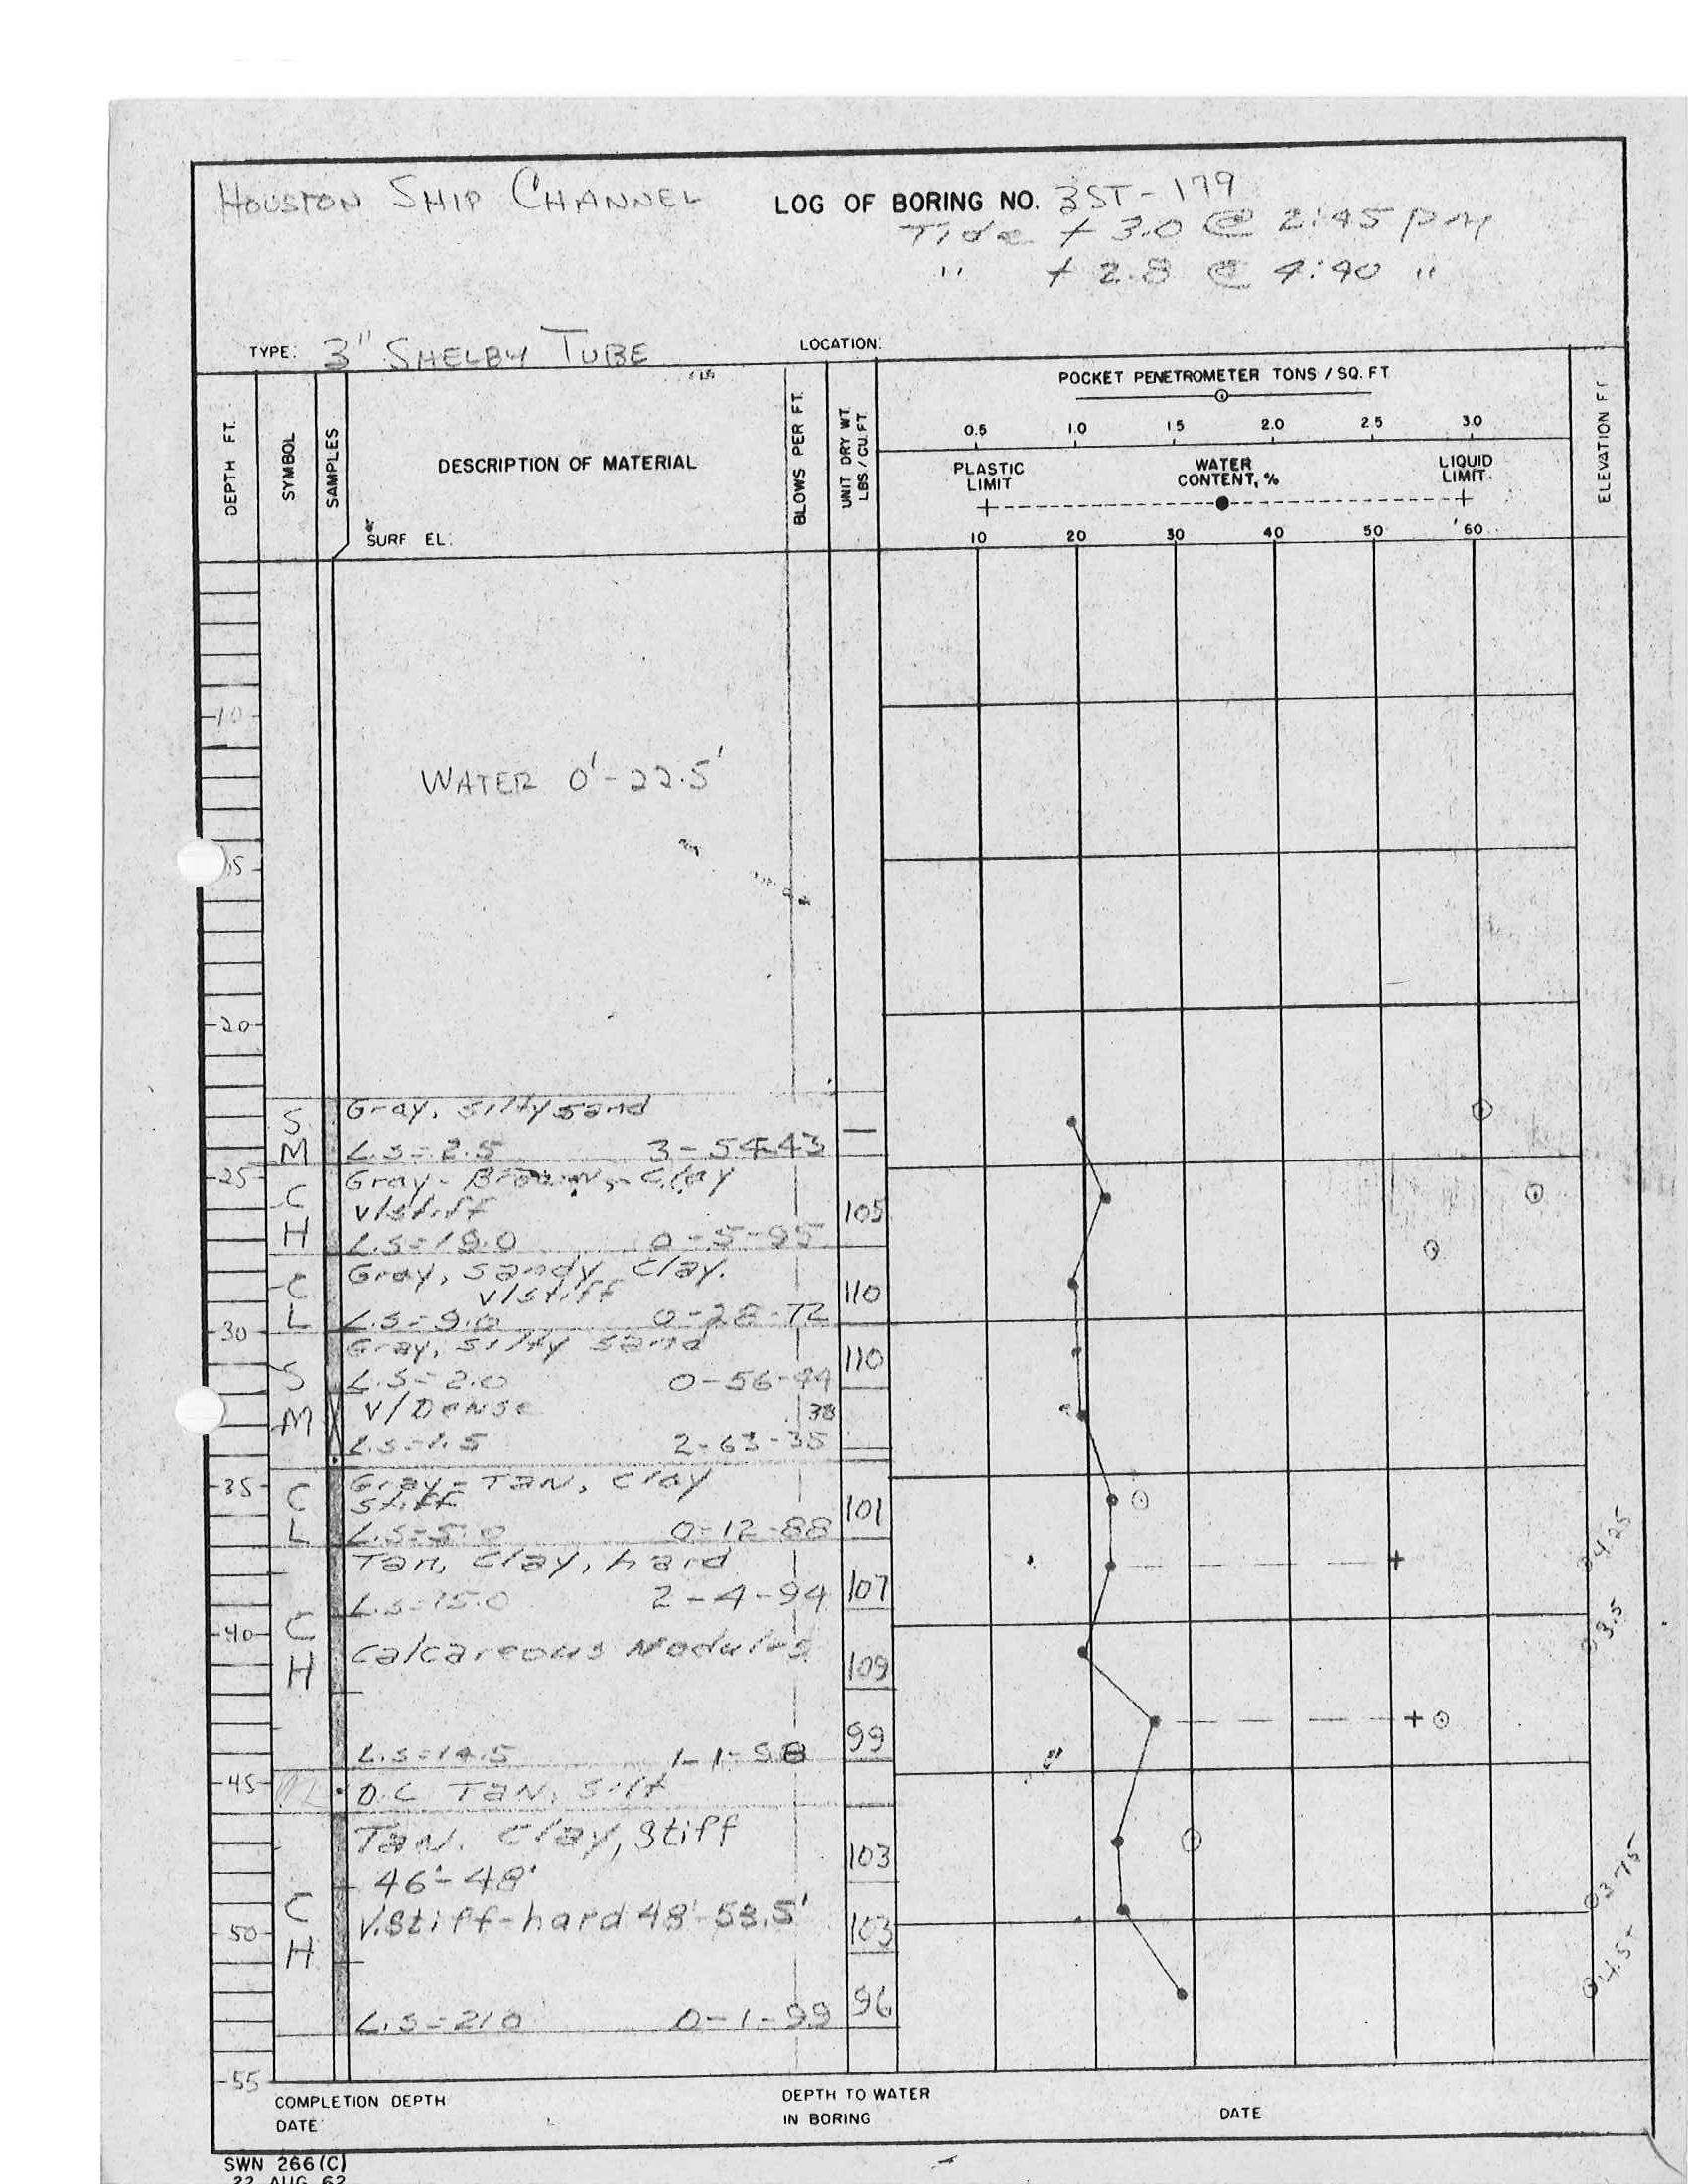 HOUSTON SHIP CHANNEL
LOG OF BORING NO. 3ST-179
Tide + 3.0 @ 2:45 pm
" + 2.8 @ 4:40 "
TYPE: 3" SHELBY TUBE
LOCATION:
DEPTH FT.
SYMBOL
SAMPLES
DESCRIPTION OF MATERIAL
SURF EL:
BLOWS PER FT.
UNIT DRY WT. LBS./CU.FT
POCKET PENETROMETER TONS / SQ. FT
0.5 1.0 1.5 2.0 2.5 3.0
PLASTIC LIMIT
WATER CONTENT, %
LIQUID LIMIT
10 20 30 40 50 60
ELEVATION FT
10
WATER 0'-22.5'
15
20
SM
Gray, silty sand
L.S=2.5 3-54-43
25
CH
Gray-Brown, clay
v/stiff
L.S=19.0 0-5-95
105
CL
Gray, sandy clay.
v/stiff
L.S=9.0 0-28-72
110
30
SM
Gray, silty sand
L.S=2.0 0-56-44
110
v/Dense
38
L.S=1.5 2-63-35
35
CL
Gray-TAN, clay
stiff
L.S=5.0 0-12-88
101
CH
Tan, clay, hard
L.S=15.0 2-4-94
107
04.25
40
Calcareous Nodules
109
03.5
99
L.S=14.5 1-1-98
45
ML
O.C TAN, Silt
CH
TAN. Clay, Stiff
46'-48'
103
V.Stiff-hard 48'-53.5'
50
103
03.75
96
04.5
L.S=21.0 0-1-99
55
COMPLETION DEPTH
DATE
DEPTH TO WATER
IN BORING
DATE
SWN 266(C)
22 AUG 62